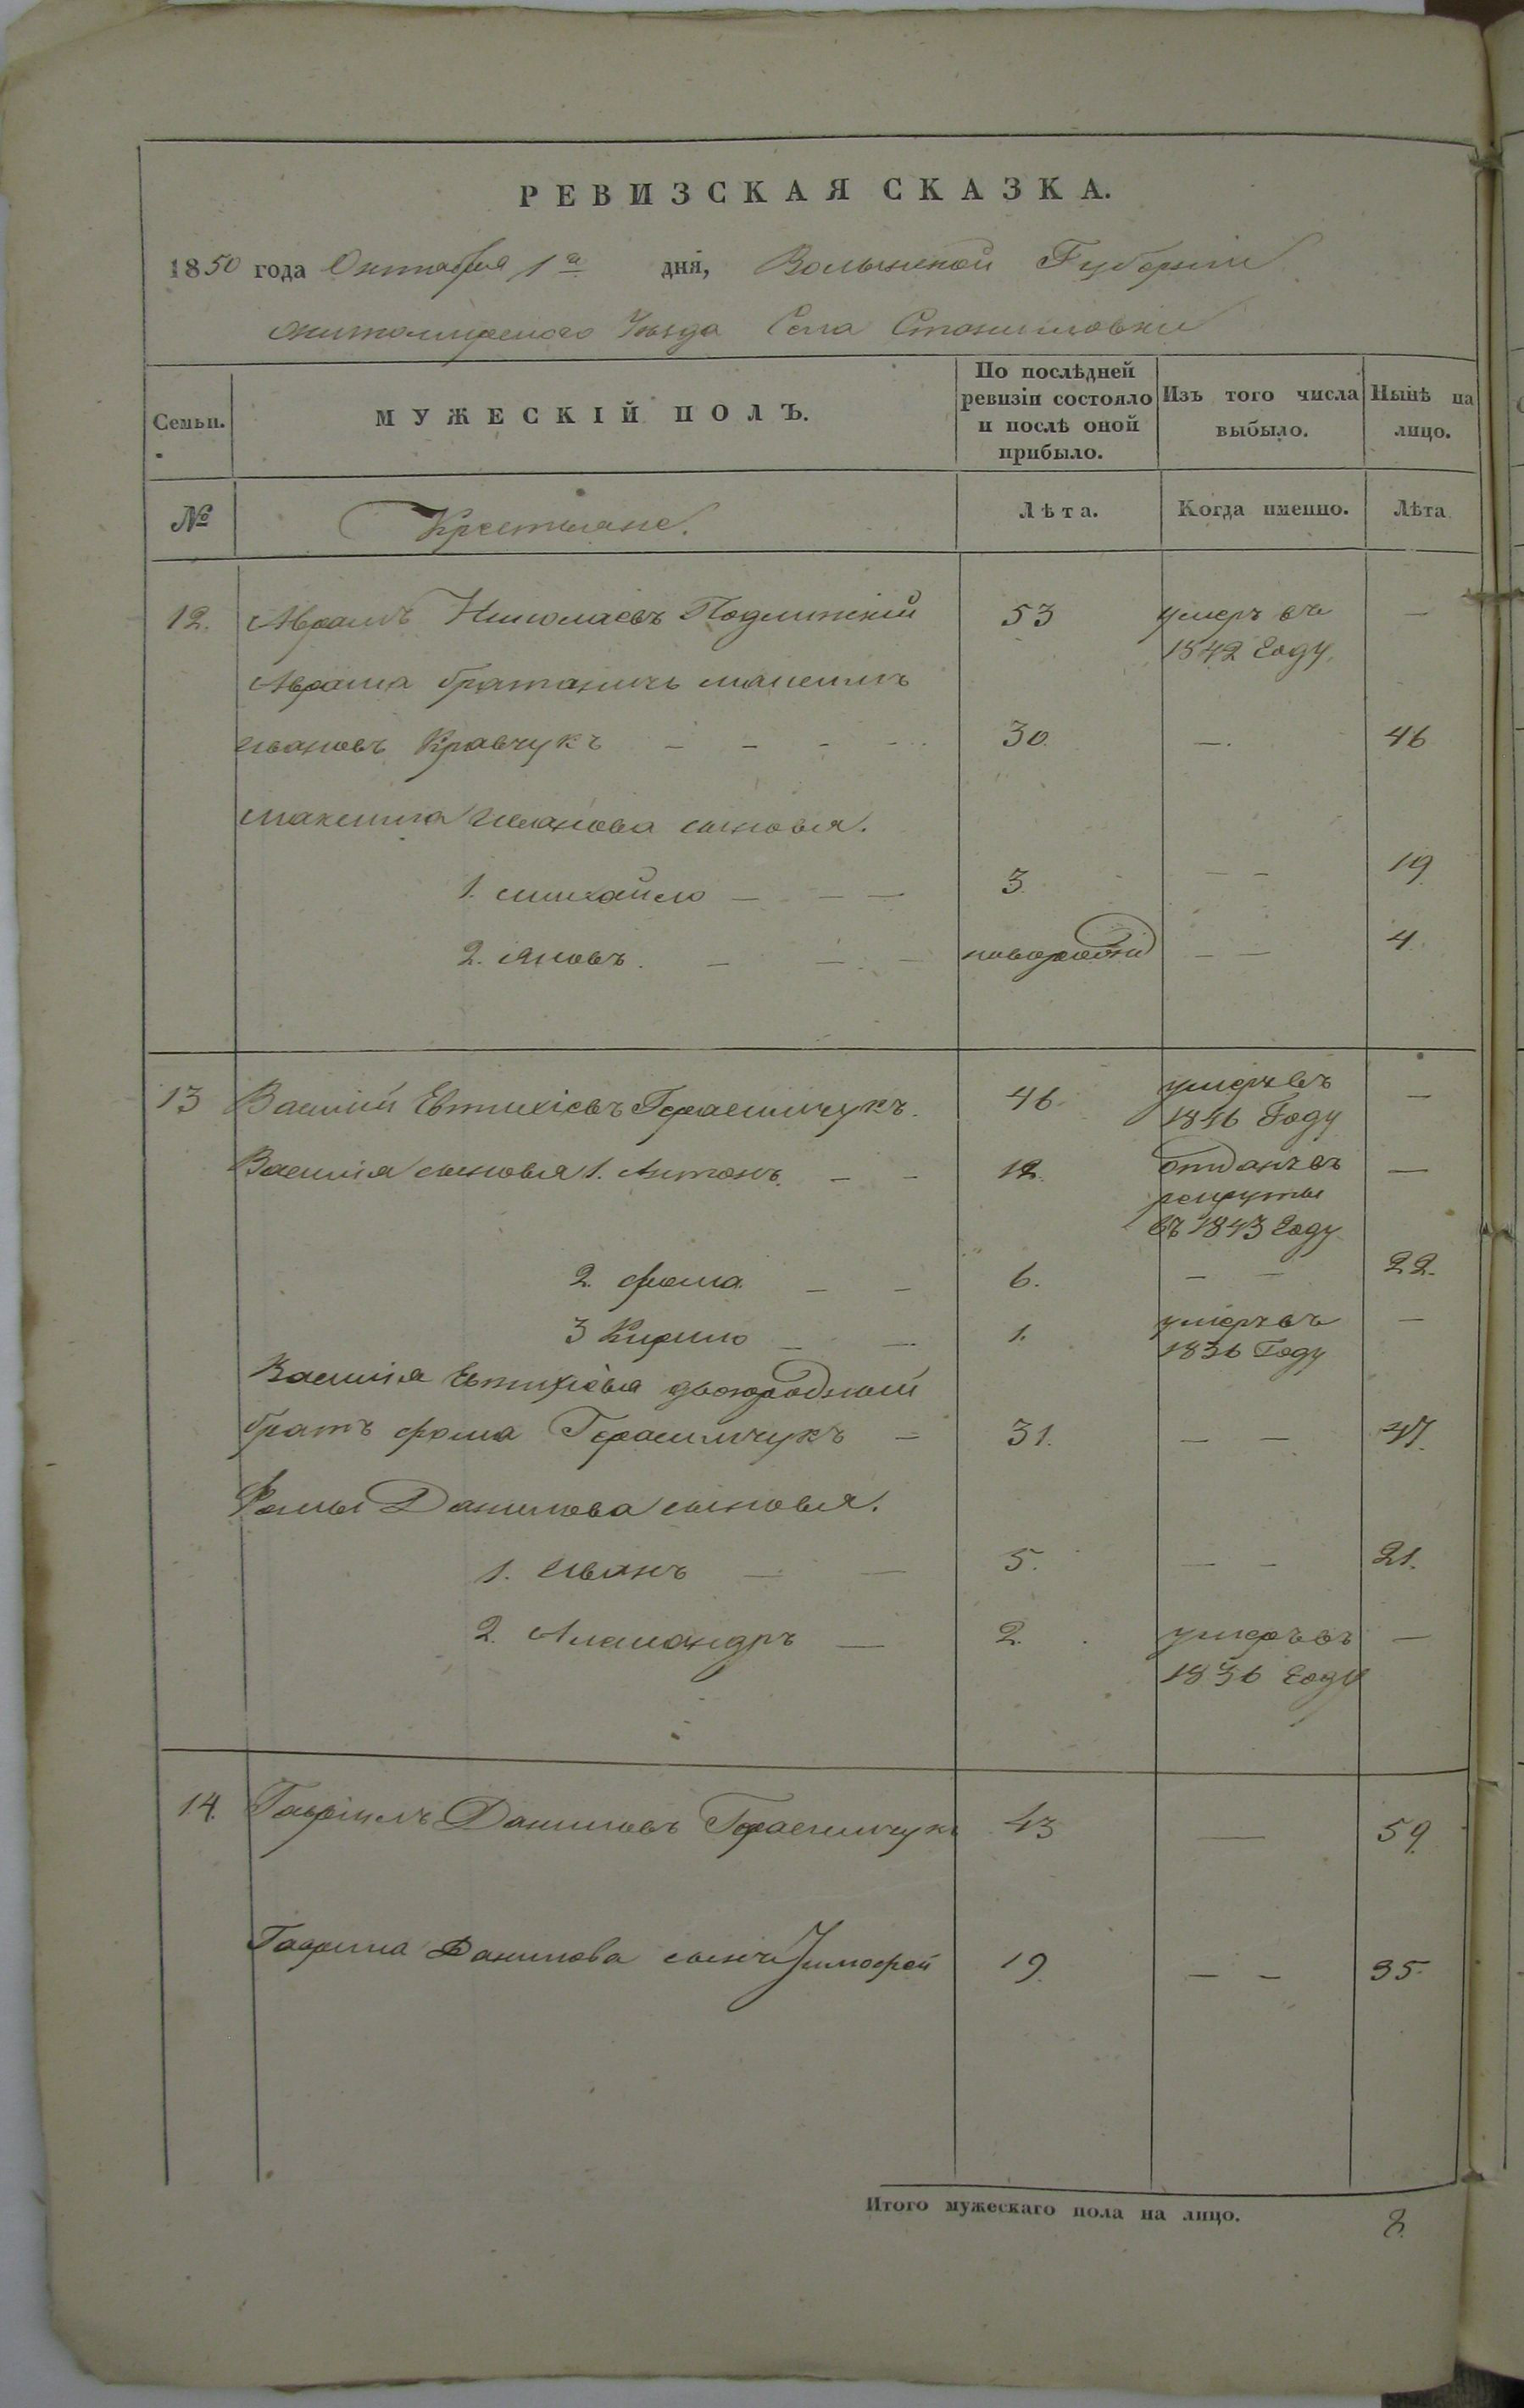 РЕВИЗСКАЯ СКАЗКА.
1850 года Октября 1го дня, Волынской Губерніи
Житомирскаго Уѣзда Села Станишовки
Семьи.
МУЖЕСКІЙ ПОЛЪ.
По послѣдней ревизіи состояло и послѣ оной прибыло.
Изъ того числа выбыло.
Нынѣ на лицо.
№
Крестьяне.
Лѣта.
Когда именно.
Лѣта.
12. Аврамъ Николаевъ 53 умеръ въ —
1842 Году.
Аврама братаничъ Максимъ
Ивановъ Кравчукъ — — — — 30. —. 46
Максима Иванова сыновья.
1. Михайло — — — 3. — — 19.
2. Яковъ. — — — новорожд — — 4.
13 Василій Евтихіевъ Герасимчукъ. 46. умеръ въ —
1846 Году
Василія сыновья 1. Антонъ. — — 12. отданъ въ —
рекруты
въ 1843 Году
2. Фома — — 6. — — 22.
3 Кирило — — 1. умеръ въ —
1836 Году
Василія Евтихіева двоюродный
братъ Фома Герасимчукъ — 31. — — 47.
Фомы Данилова сыновья.
1. Иванъ — — 5. — — 21.
2. Александръ — 2. умеръ въ —
1836 Году
14. Гавріилъ Даниловъ Герасимчукъ 43 — 59.
Гаврила Данилова сынъ Тимофей 19. — — 35.
Итого мужескаго пола на лицо. 8.